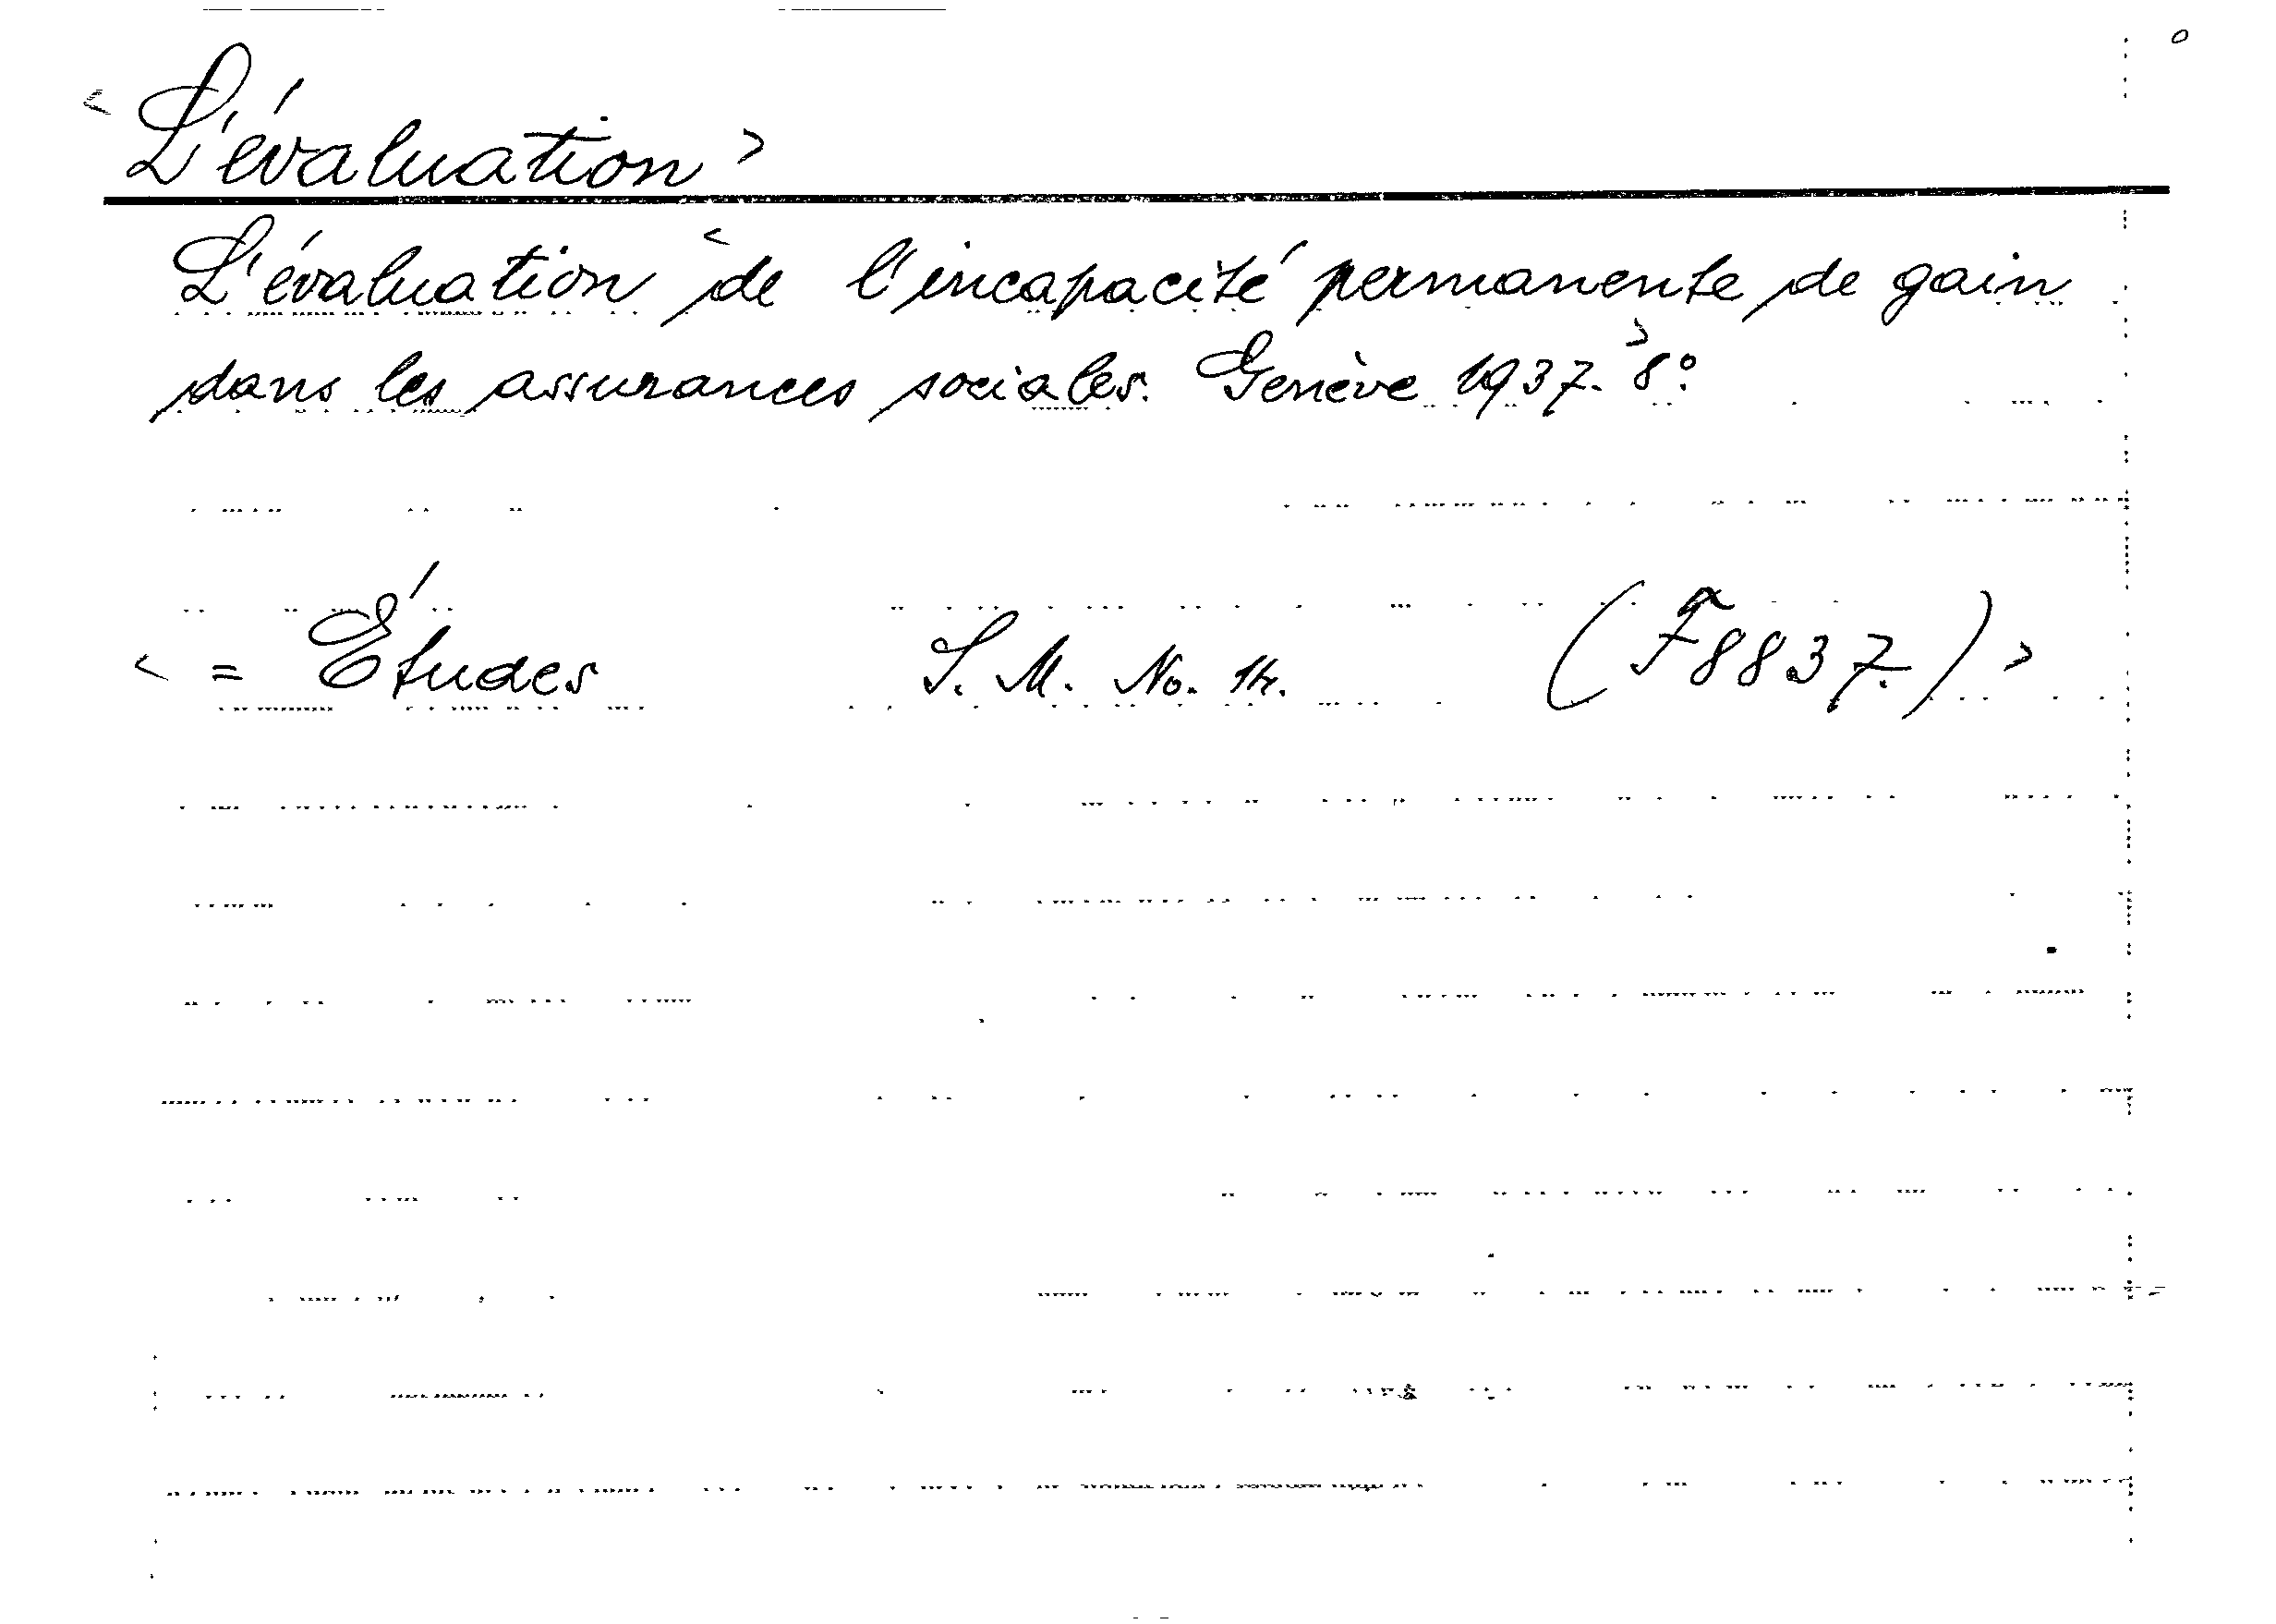 < L'évaluation >
L'évaluation < de l'incapacité permanente de gain
dans les assurances sociales. Genève 1937. > 8°.
< = Études S. M. No. 14. (F8837.) >